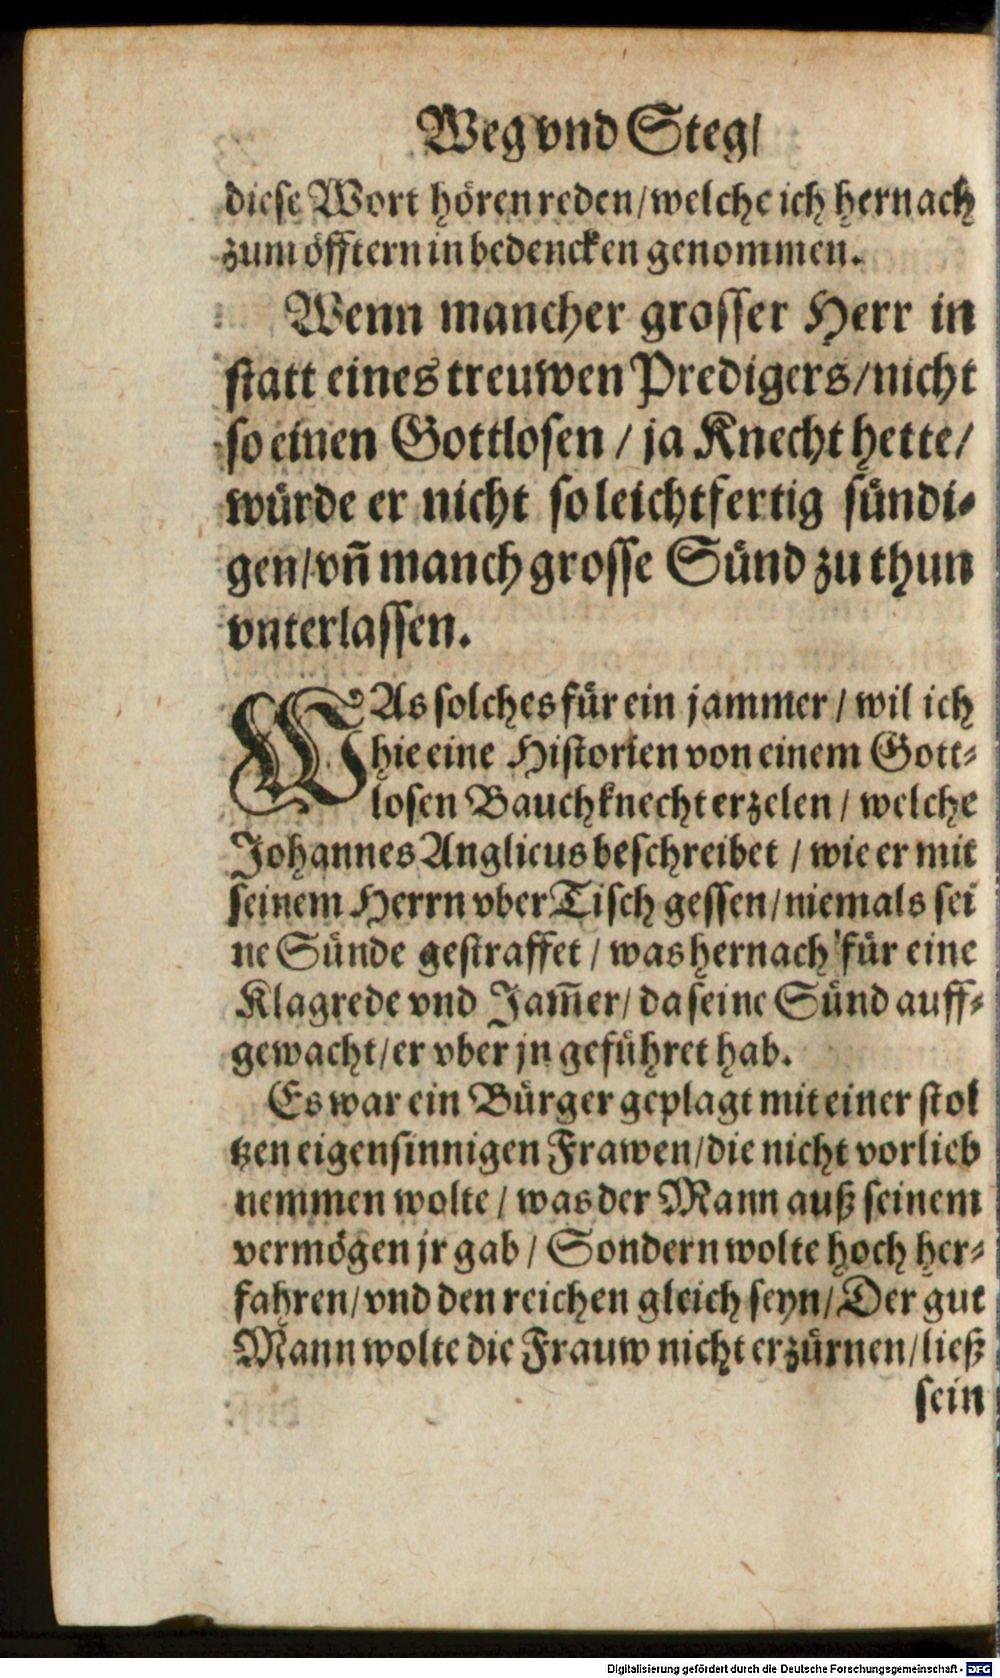 Weg vnd Steg/
diese Wort hören reden/welche ich hernach
zum öfftern in bedencken genommen.
Wenn mancher grosser Herr in
statt eines treuwen Predigers/nicht
so einen Gottlosen / ja Knecht hette/
würde er nicht so leichtfertig sündi-
gen/vñ manch grosse Sünd zu thun
vnterlassen.
WAs solches für ein jammer / wil ich
hie eine Historien von einem Gott-
losen Bauchknecht erzelen / welche
Johannes Anglicus beschreibet / wie er mit
seinem Herrn vber Tisch gessen/niemals sei
ne Sünde gestraffet / was hernach für eine
Klagrede vnd Jam̃er/ da seine Sünd auff-
gewacht/er vber jn geführet hab.
Es war ein Bürger geplagt mit einer stol
tzen eigensinnigen Frawen/die nicht vorlieb
nemmen wolte / was der Mann auß seinem
vermögen jr gab / Sondern wolte hoch her-
fahren/vnd den reichen gleich seyn/Der gut
Mann wolte die Frauw nicht erzürnen/ließ
sein
Digitalisierung gefördert durch die Deutsche Forschungsgemeinschaft - DFG